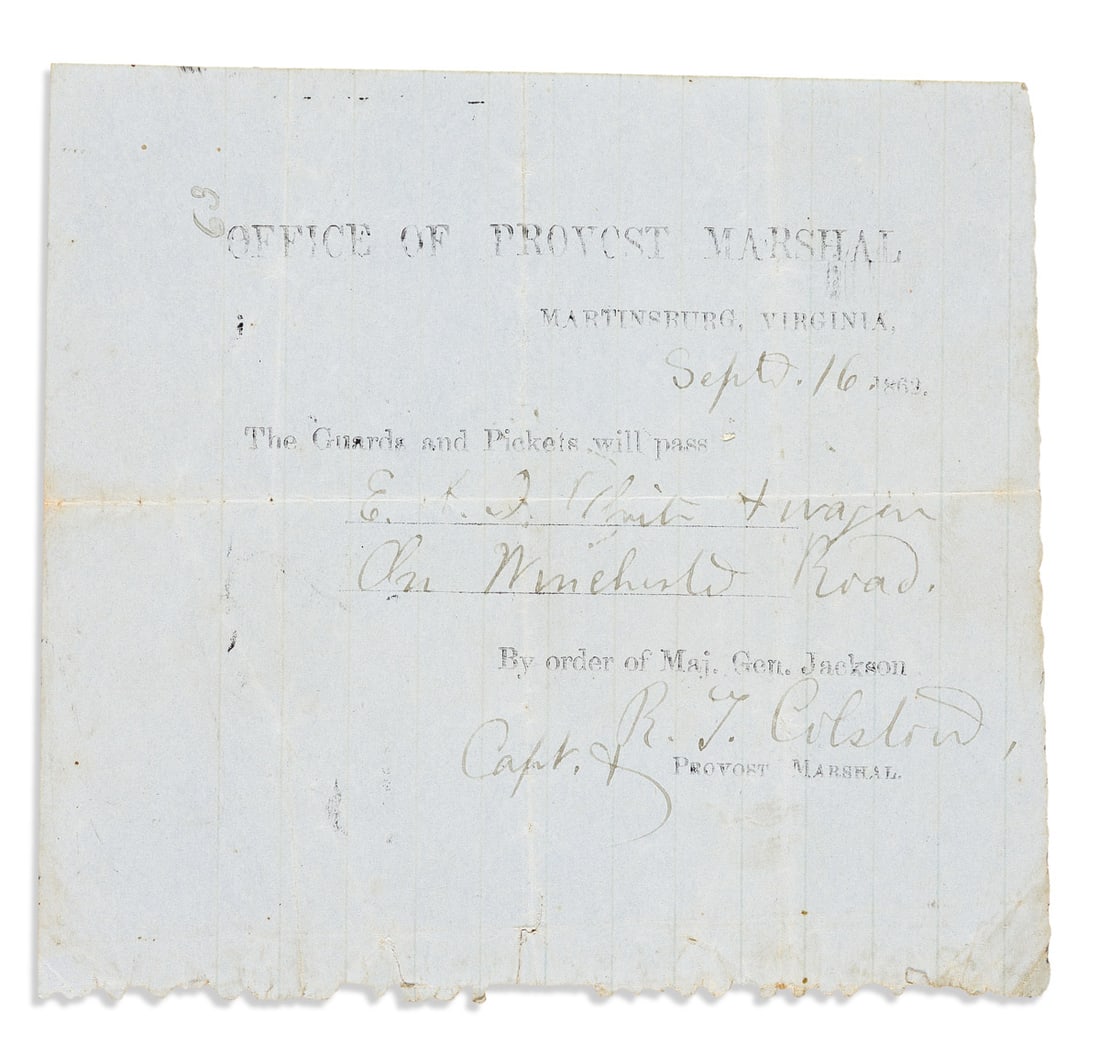 OFFICE OF PROVOST MARSHAL
MARTINSBURG, VIRGINIA,
Septr. 16 1862.
The Guards and Pickets will pass
E. F. White & wagon
On Winchester Road.
By order of Maj. Gen. Jackson
R. T. Colston,
Capt. &
PROVOST MARSHAL.